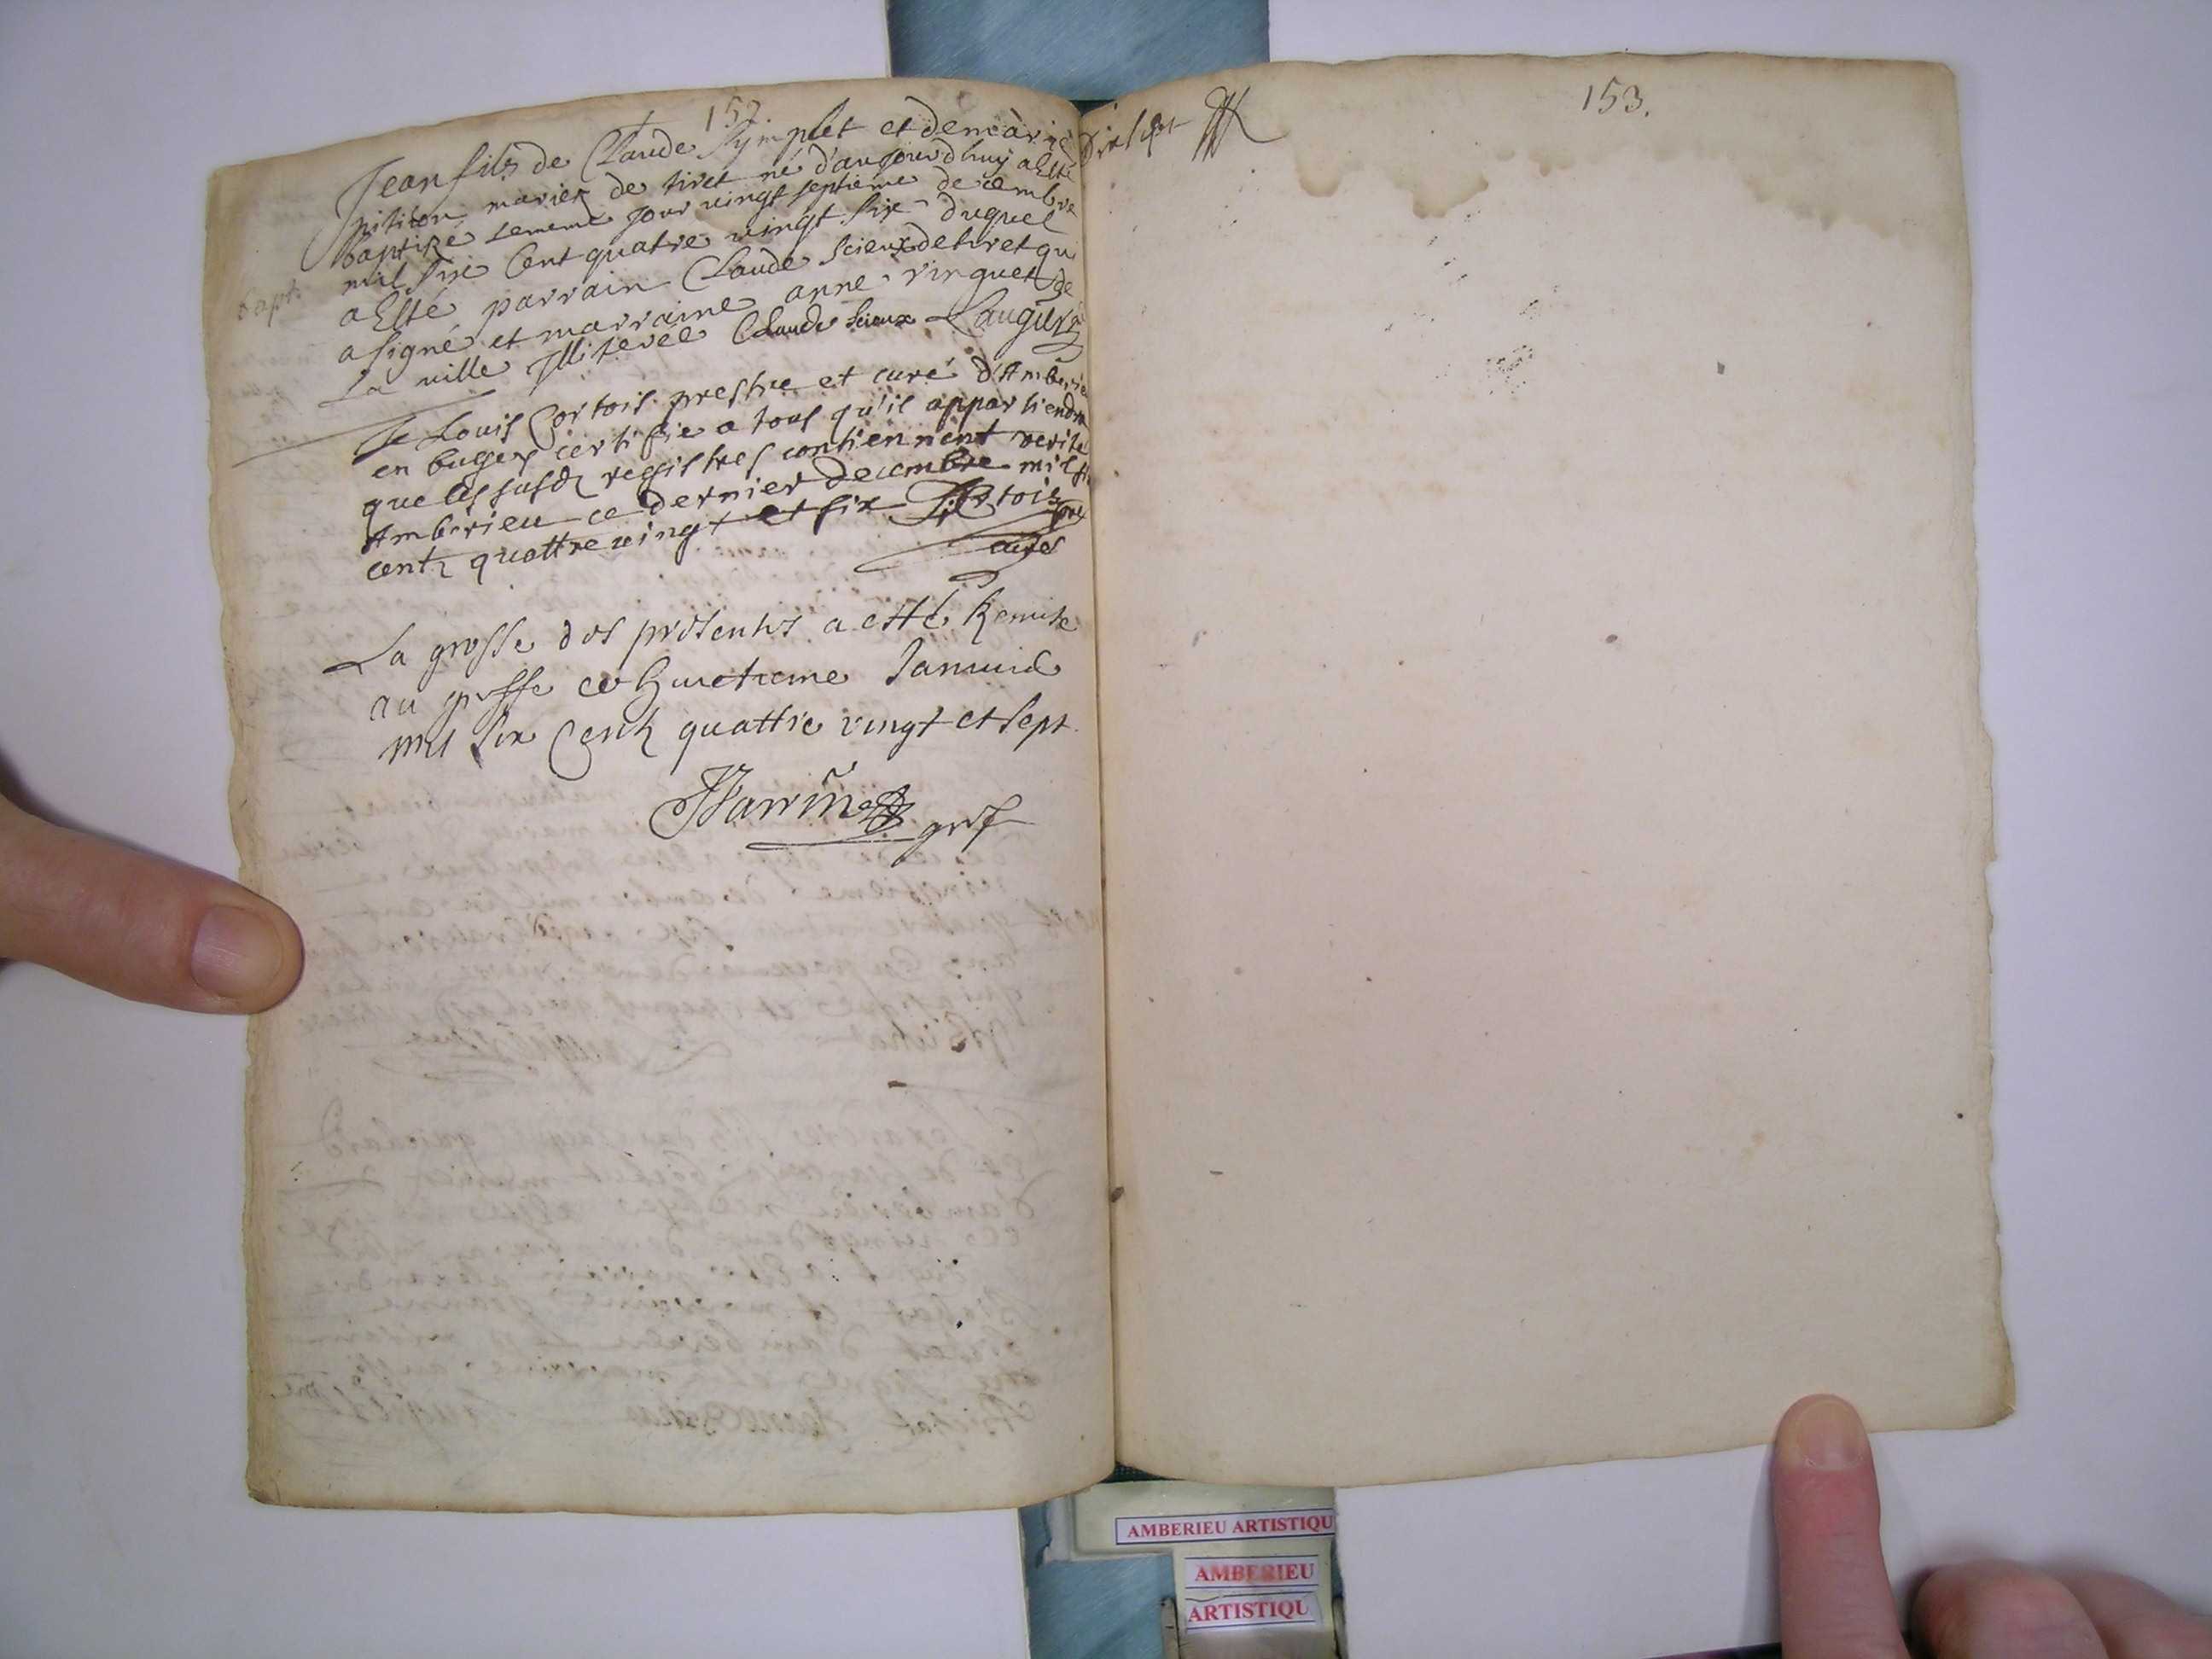 152.
Jean fils de Claude Symplet et de marie
pititon mariez de tiret né d'aujourd'huy a Esté
baptizé le meme jour vingt septieme decembre
mil six Cent quatre vingt six duquel
a Esté parrain Claude Scieux de tiret qui
a signé et marraine anne vinguet de
La ville Illiterée Claude Scieux Laugier
bapt.
Je Louis Cortois prestre et curé d'Amberieu
en bugey certifie a tous qu'il appartiendra
que les susdz registres contiennent verité
Amberieu ce dernier decembre mil six
centz quattre vingt et six Cortois
curé
La grosse des presentes a esté Remise
au greffe ce huictieme Janvier
mil six Centz quattre vingt et sept.
gref
153.
AMBERIEU ARTISTIQU
AMBERIEU
ARTISTIQU